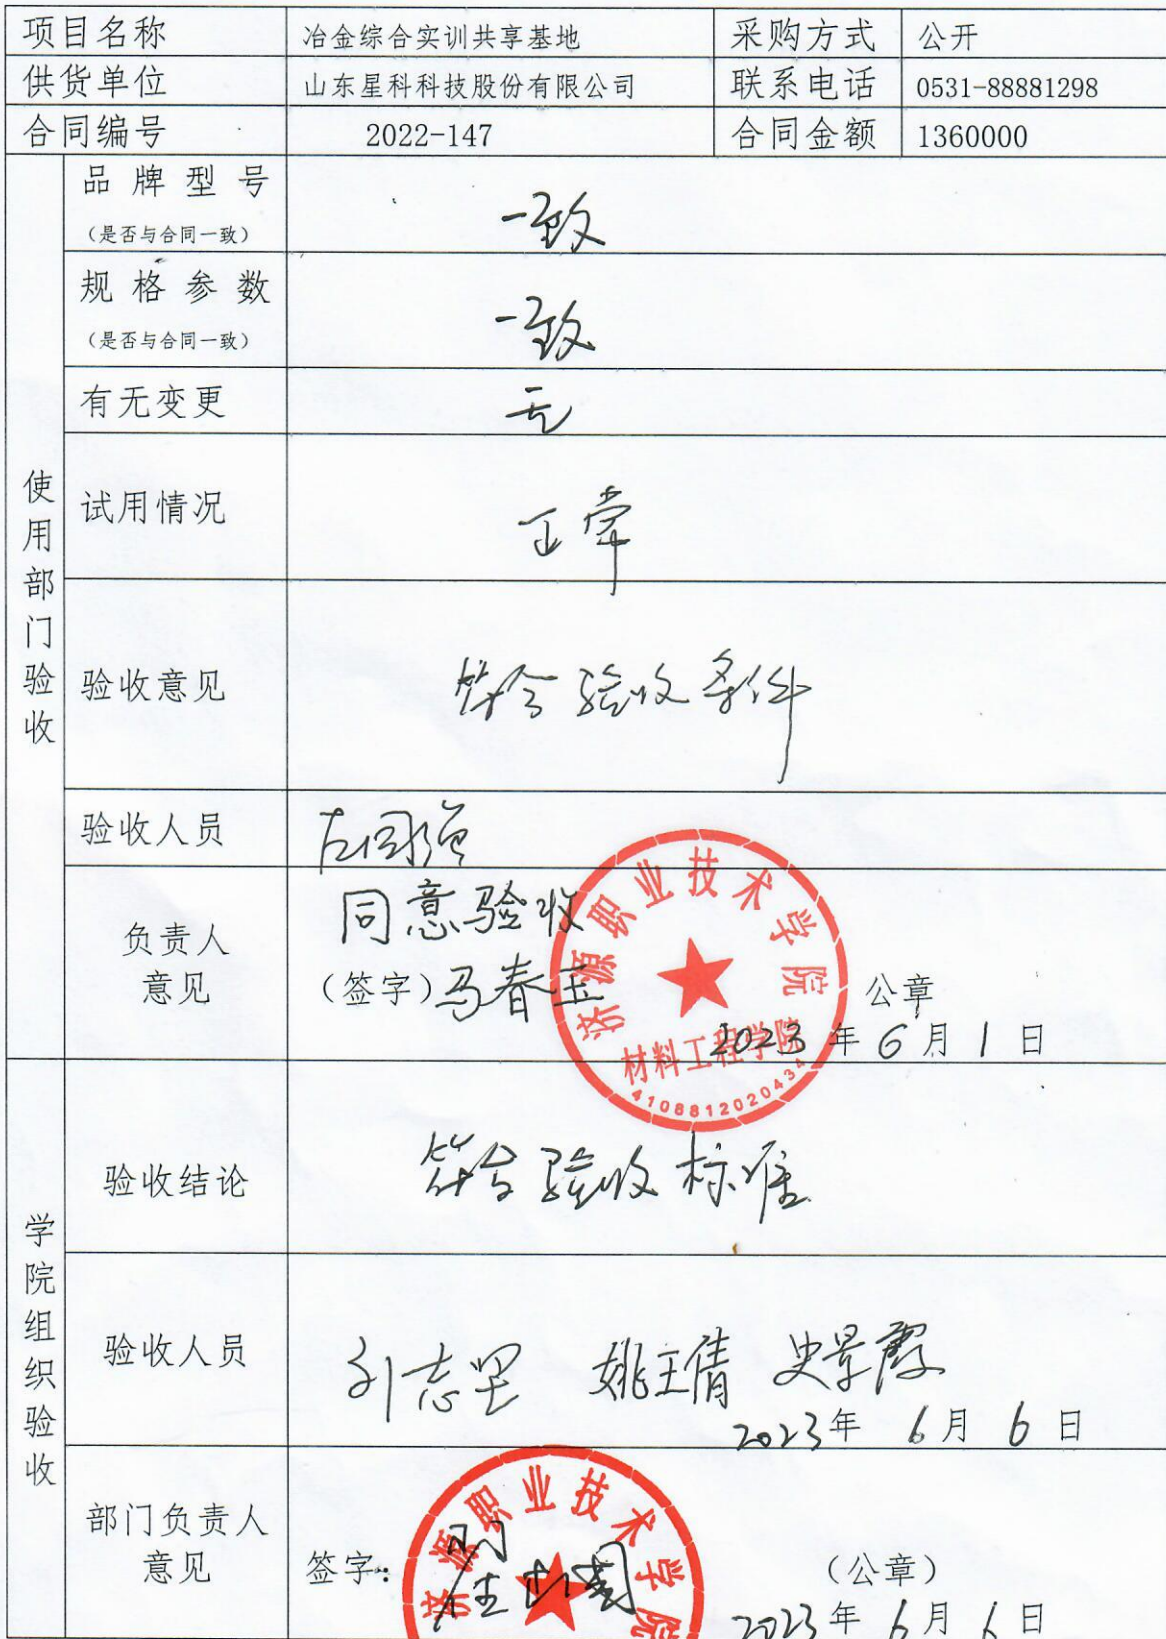 项目名称 冶金综合实训共享基地 采购方式 公开
供货单位 山东星科科技股份有限公司 联系电话 0531-88881298
合同编号 2022-147 合同金额 1360000
使用部门验收
品牌型号
（是否与合同一致）
一致
规格参数
（是否与合同一致）
一致
有无变更 无
试用情况 正常
验收意见 符合验收条件
验收人员
负责人
意见
同意验收
（签字）马春玉
公章
2023年6月1日
济源职业技术学院
材料工程学院
4108812020434
学院组织验收
验收结论 符合验收标准
验收人员 刘志坚 姚主倩 史景霞
2023年6月6日
部门负责人
意见
签字：
（公章）
2023年6月6日
济源职业技术学院